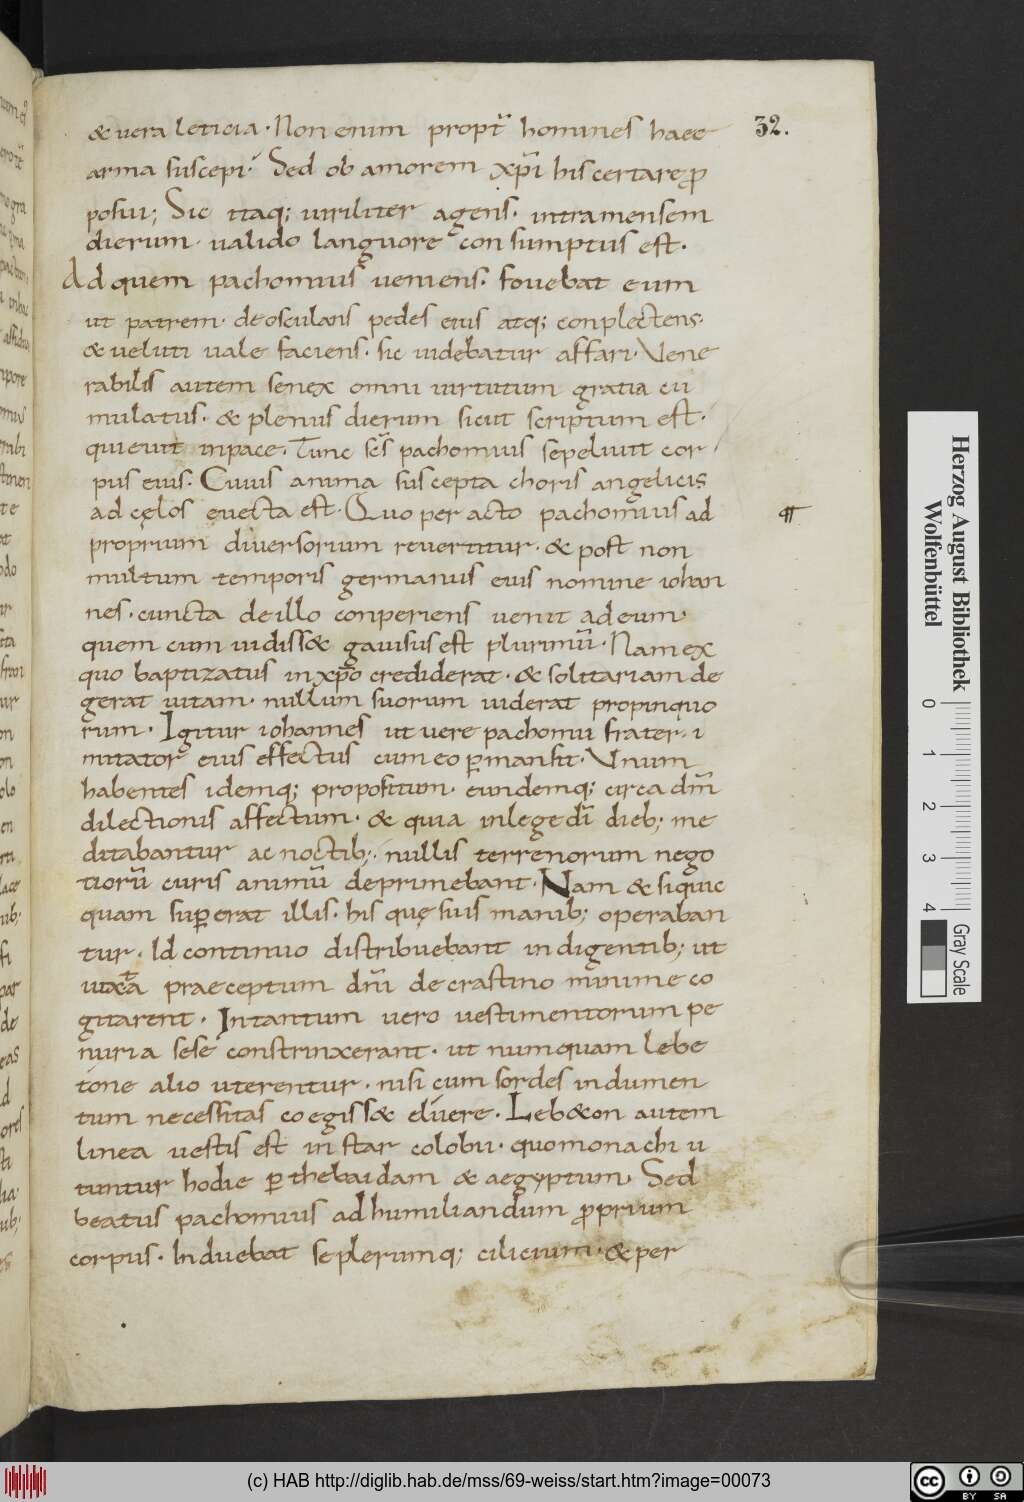 32.
& uera leticia. Non enim propt̄ homines haec
arma suscepi. Sed ob amorem xp̄i his certare ꝓ
posui; Sic itaq; uiriliter agens. intra mensem
dierum. ualido languore consumptus est.
Ad quem pachomius ueniens. fouebat eum
ut patrem. deosculans pedes eius atq; conplectens.
& ueluti uale faciens. sic uidebatur affari. Vene
rabilis autem senex omni uirtutum gratia cu
mulatus. & plenus dierum sicut scriptum est.
quieuit inpace. Tunc sc̄s pachomius sepeliuit cor
pus eius. Cuius anima suscepta choris angelicis
ad cęlos euecta est. Quo peracto pachomius ad
¶
proprium diuersorium reuertitur. & post non
multum temporis germanus eius nomine iohan
nes. cuncta deillo conperiens uenit ad eum.
quem cum uidiss& gauisus est plurimū. Nam ex
quo baptizatus in xp̄o crediderat. & solitariam de
gerat uitam. nullum suorum uiderat propinquo
rum. Igitur iohannes ut uere pachomii frater. i
mitator eius effectus cum eo ꝑmansit. Vnum
habentes idemq; propositum. eundemq; circa dm̄
dilectionis affectum. & quia inlege dī dieb; me
ditabantur ac noctib; nullis terrenorum nego
tiorū curis animū deprimebant. Nam & siquic
quam suꝑerat illis. his quę suis manib; operaban
tur. Id continuo distribuebant indigentib; ut
iuxta praeceptum dnī de crastino minime co
gitarent. Intantum uero uestimentorum pe
nuria sese constrinxerant. ut numquam lebe
tone alio uterentur. nisi cum sordes indumen
tum necessitas coegiss& eluere. Leb&on autem
linea uestis est instar colobii. quo monachi u
tuntur hodie ꝑ thebaidam & aegyptum. Sed
beatus pachomius ad humiliandum ꝓprium
corpus. Induebat se plerumq; cilicium. & per
Herzog August Bibliothek
Wolfenbüttel
0 1 2 3 4
Gray Scale
(c) HAB http://diglib.hab.de/mss/69-weiss/start.htm?image=00073
cc BY SA